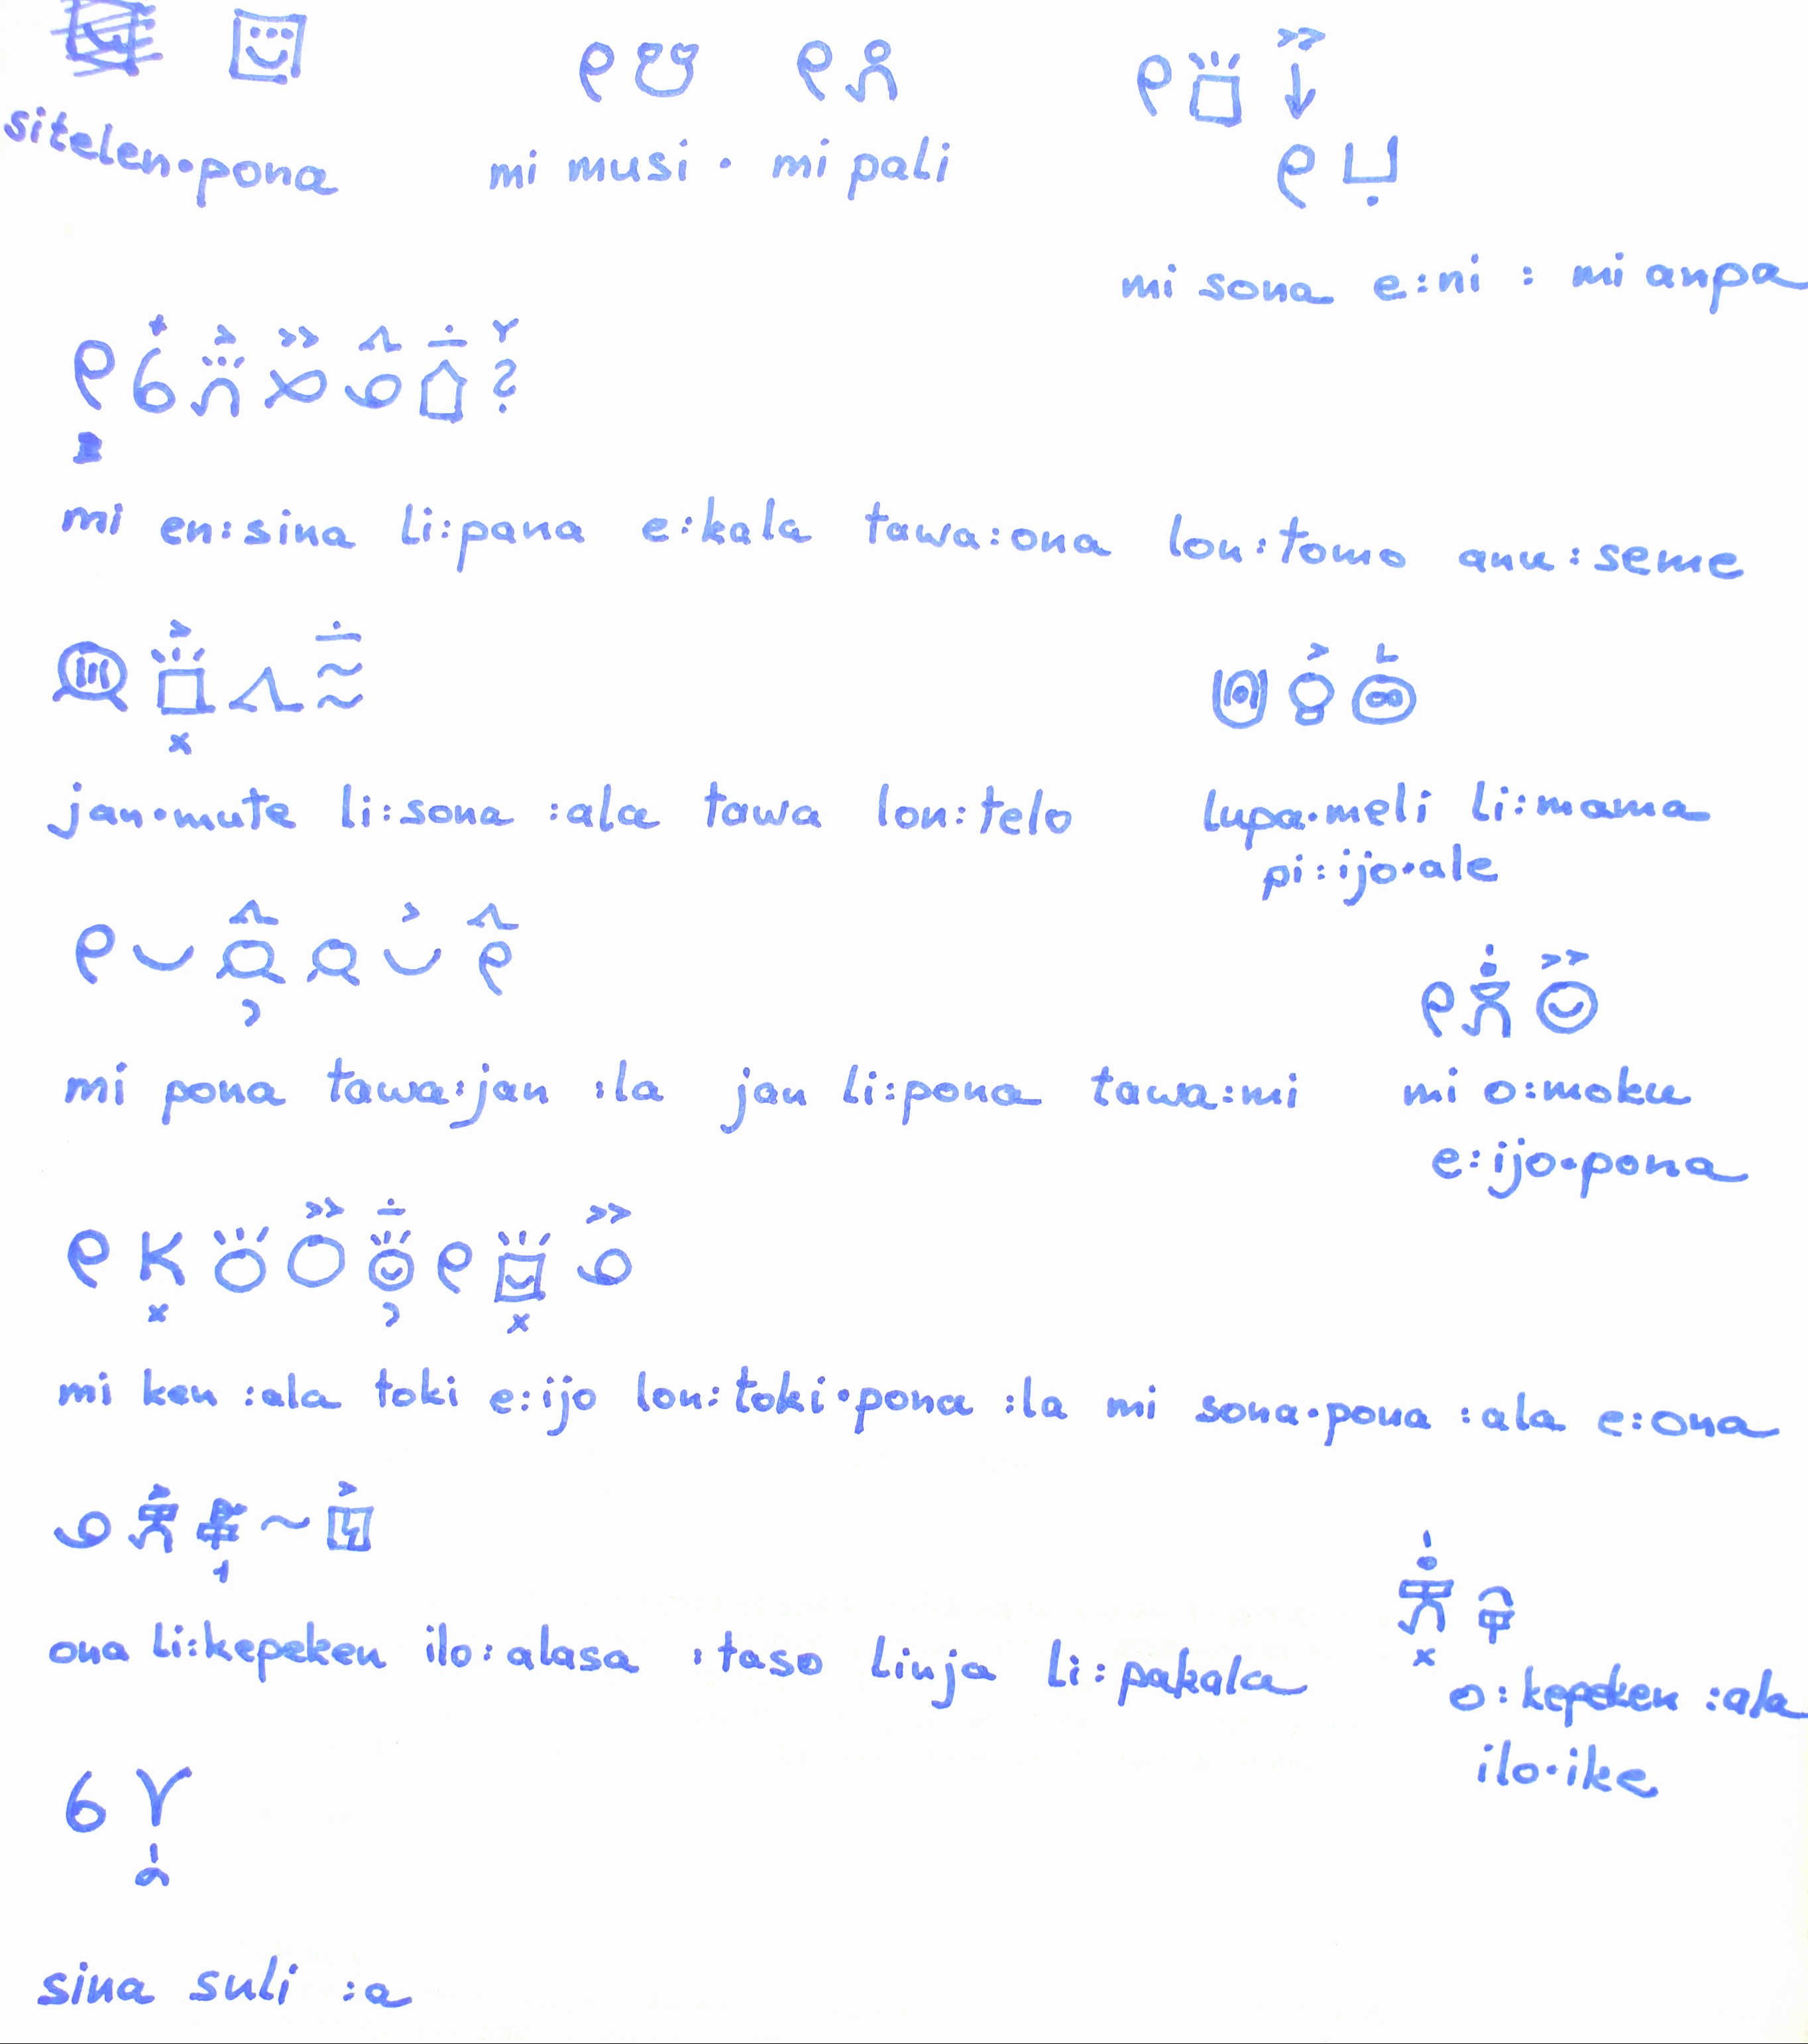 sitelen·pona
mi musi · mi pali
mi sona e:ni : mi anpa
mi en:sina li:pana e:kala tawa:ona lon:tomo anu:seme
jan·mute li:sona :ala tawa lon:telo
lupa·meli li:mama
pi:ijo·ale
mi pona tawa:jan :la jan li:pona tawa:mi
mi o:moku
e:ijo·pona
mi ken :ala toki e:ijo lon:toki·pona :la mi sona·pona :ala e:ona
ona li:kepeken ilo:alasa :taso linja li:pakala
o:kepeken :ala
ilo·ike
sina suli :a